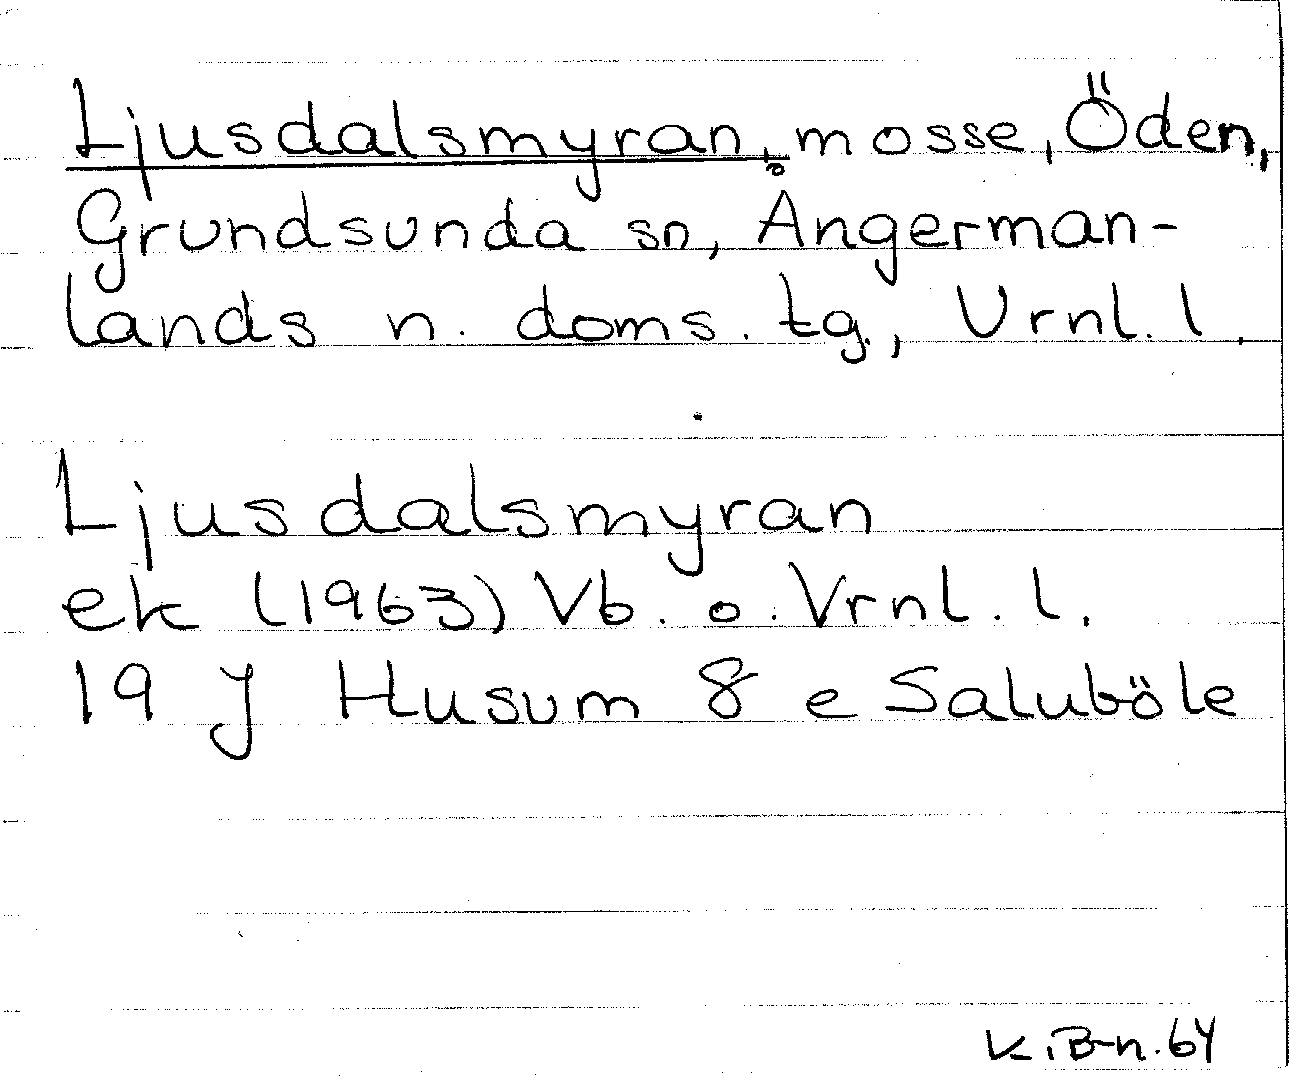 Ljusdalsmyran, mosse, Öden,
Grundsunda sn, Ångerman-
lands n. doms. tg., Vrnl. l.
Ljusdalsmyran
ek (1963) Vb. o. Vrnl. l.
19 J Husum 8 e Saluböle
K.B-n.64